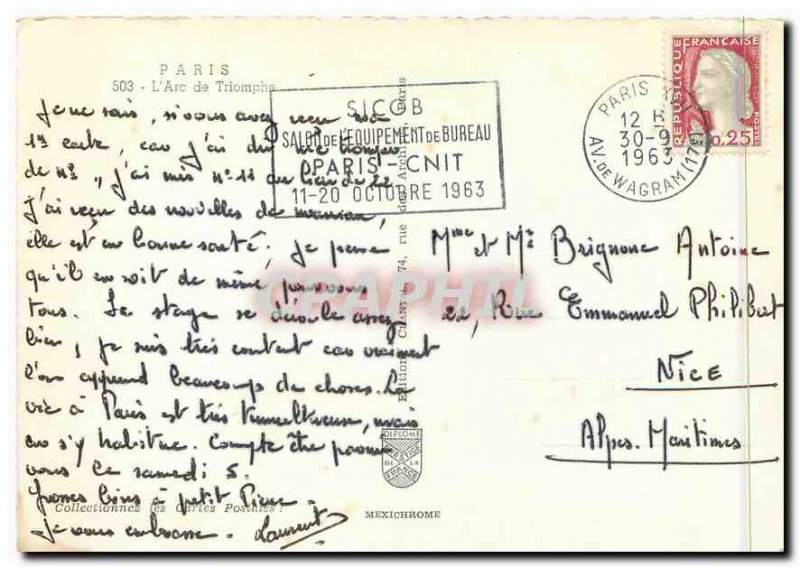 PARIS
503 - L'Arc de Triomphe
SICOB
SALON DE L'EQUIPEMENT DE BUREAU
PARIS - CNIT
11-20 OCTOBRE 1963
PARIS XVII
12 H
30-9
1963
AV. DE WAGRAM (17E)
REPUBLIQUE FRANÇAISE
0,25
POSTES
Je ne sais, si vous avez reçu ma
1re carte, car j'ai dû me tromper
de n°, j'ai mis n° 11 au lieu de 22
J'ai reçu des nouvelles de maman,
elle est en bonne santé, je pense
qu'il en soit de même pour vous
tous. Le stage se déroule assez
bien, je suis très content car vraiment
l'on apprend beaucoup de choses. La
vie à Paris est très tumultueuse, mais
on s'y habitue. Compte être parmi
vous le samedi 5.
Grosses bises à petit Pierre.
je vous embrasse. Laurent
Mme et Mr Brignone Antoine
22, Rue Emmanuel Philibert
NICE
Alpes-Maritimes
Editions CHANTAL, 74, rue des Archives, Paris
DIPLOME
PRESTIGE
DE LA
FRANCE
MEXICHROME
Collectionnez les Cartes Postales !
CPAPHIL